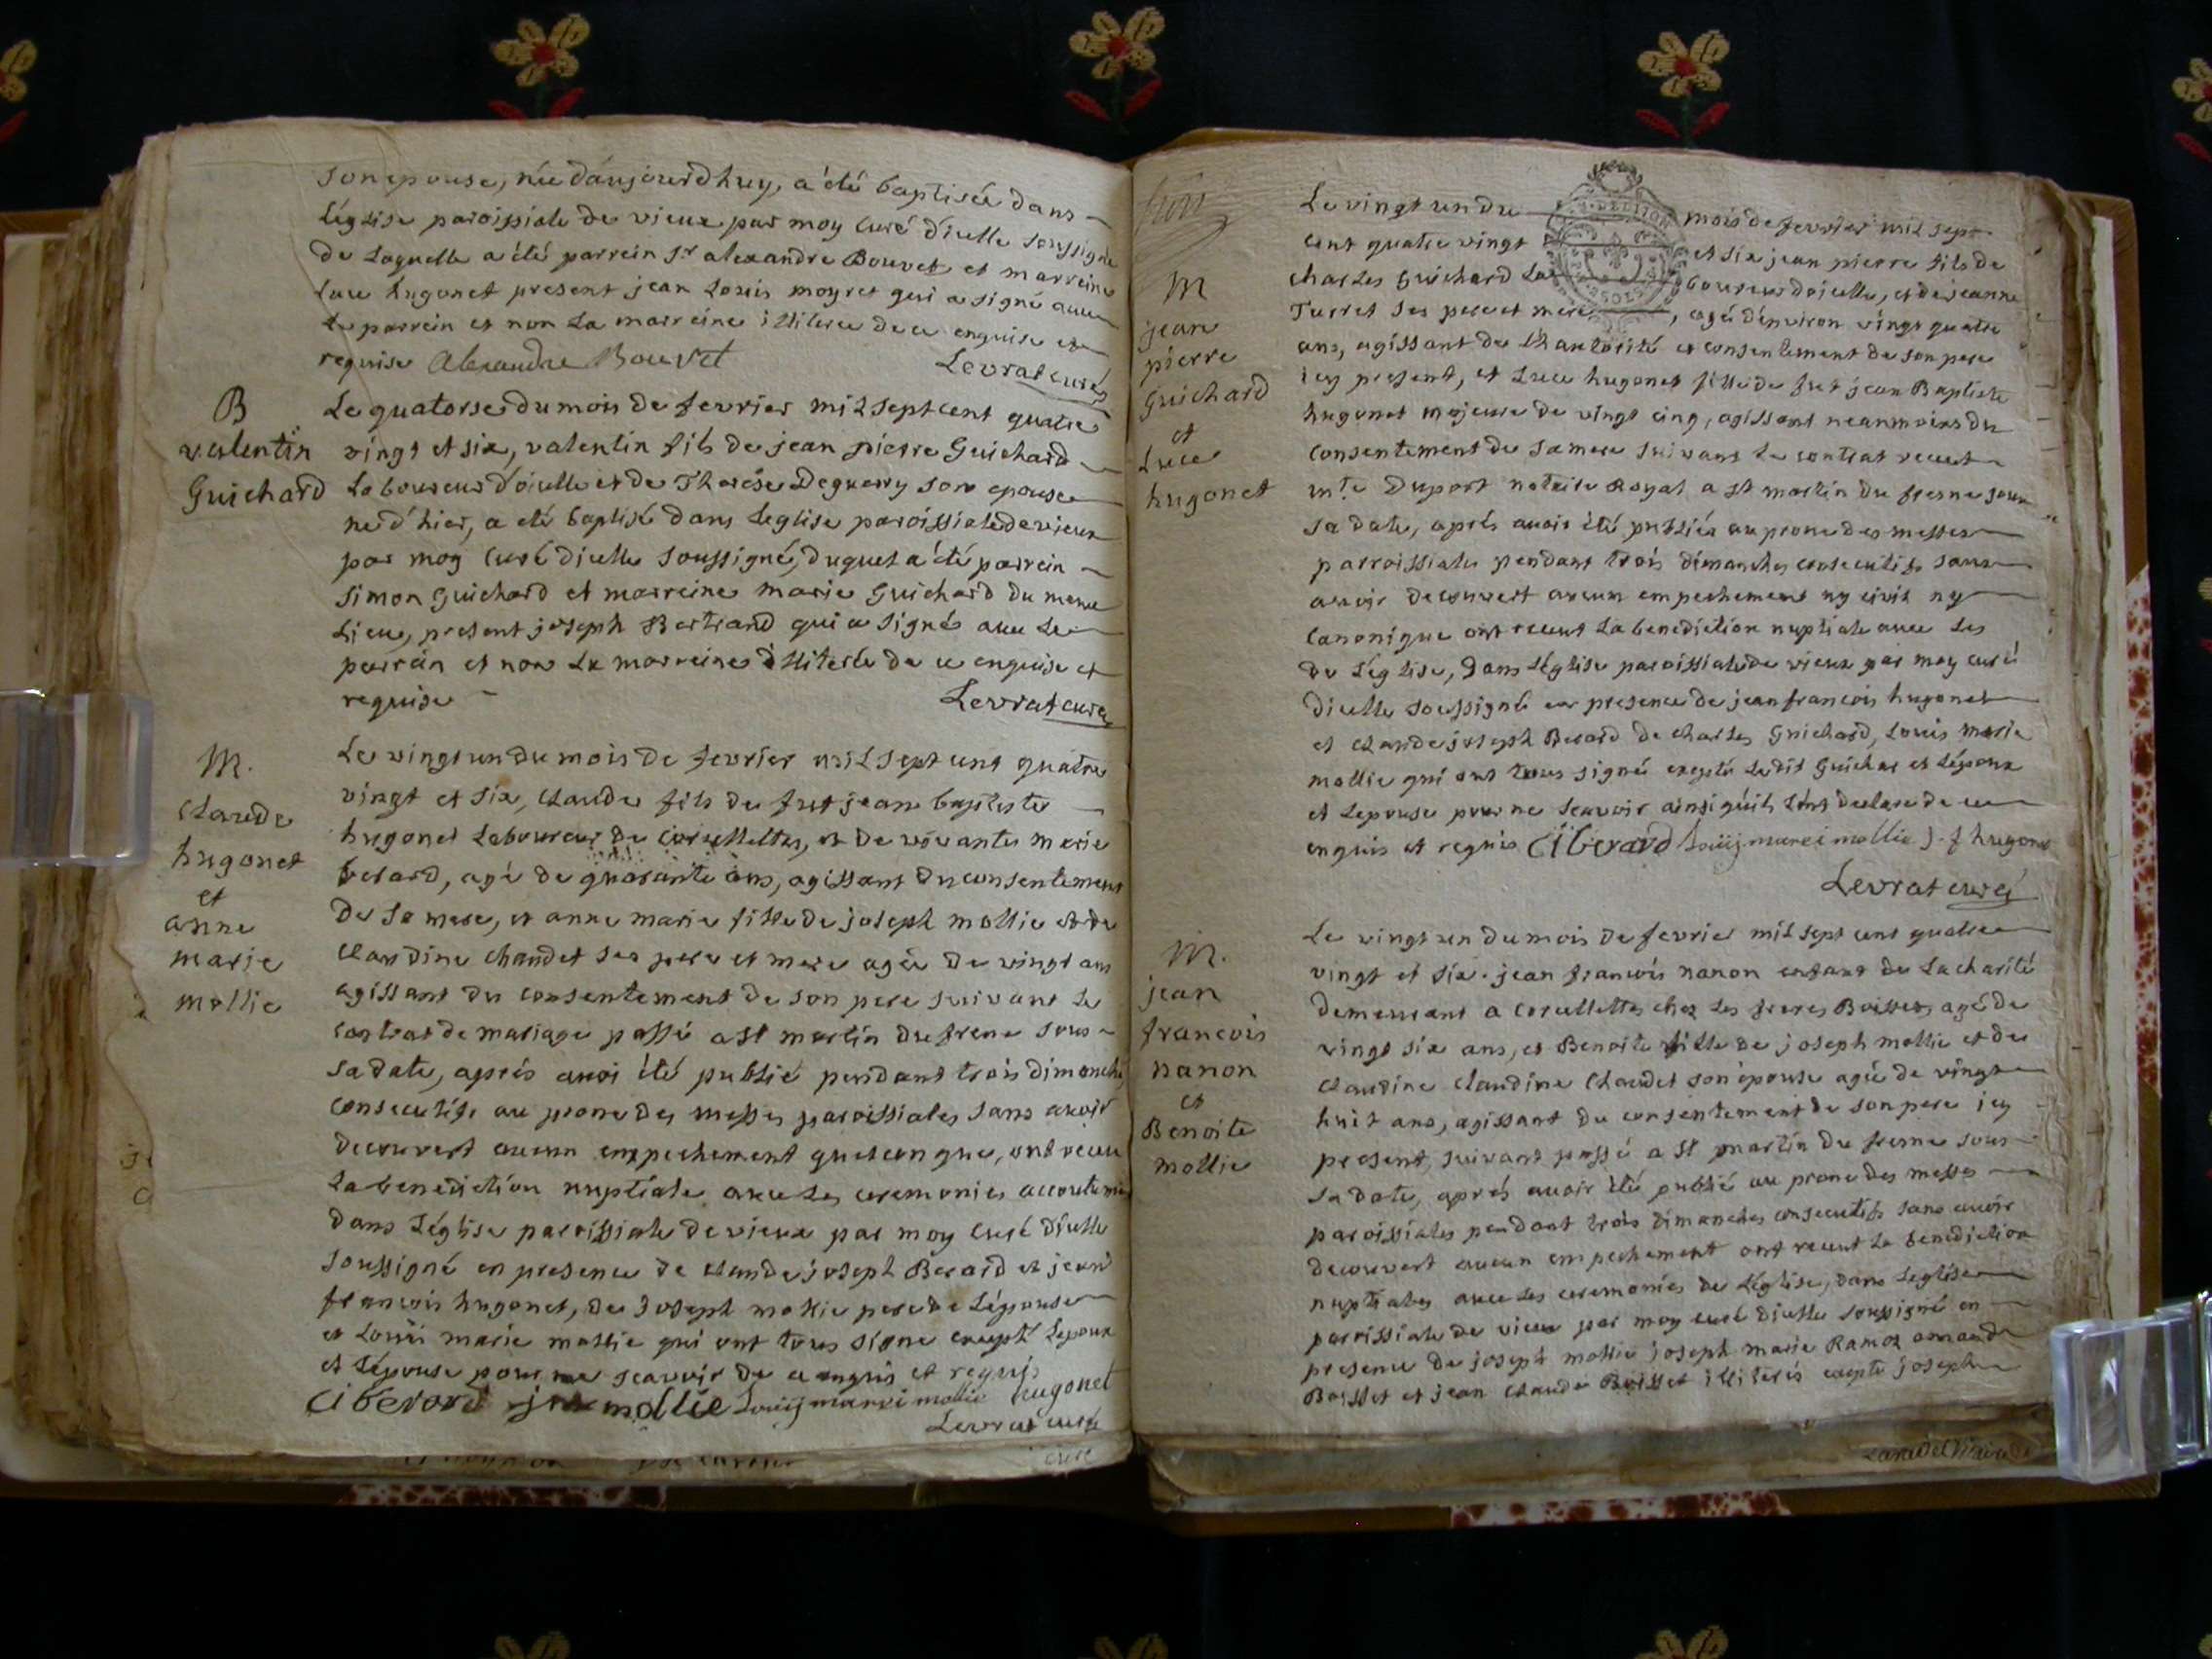 son epouse, née d'aujourd huy, a été baptisée dans
Léglise paroissiale de vieux par moy Curé d'icelle soussigné
de Laquelle a été parrein Sr alexandre Bouvet et marreine
Luce hugonet present jean Louis moyret qui a signé avec
Le parrein et non La marreine illiterée de ce enquise et
requise Alexandre Bouvet Levrat curé
B
valentin
Guichard
Le quatorse du mois de fevrier mil sept cent quatre
vingt et six, valentin fils de jean pierre Guichard
Laboureur d'icelle et de Therése Deguerry son epouse
né d'hier, a été baptisé dans Leglise paroissiale de vieux
par moy Curé d'icelle soussigné, duquel a été parrein
Simon Guichard et marreine marie Guichard du meme
Lieu, present joseph Bertrand qui a signé avec Le
parrain et non La marreine illiterée de ce enquise et
requise Levrat curé
M.
Claude
hugonet
et
anne
marie
mollie
Le vingt un du mois de fevrier mil sept cent quatre
vingt et six, Claude fils de fut jean baptiste
hugonet Laboureur de Corcellettes, et de vivante marie
berard, agé de quarante ans, agissant du consentement
de Sa mere, et anne marie fille de joseph mollie et de
Claudine Chaudet ses pere et mere agée de vingt ans
agissant du consentement de son pere suivant Le
contrat de mariage passé a St martin du frene sous
sa date, aprés avoi été publié pendant trois dimanche
consecutifs au prone des messes paroissiales sans avoir
decouvert aucun empechement quelconque, ont recu
La benediction nuptiale avec Les ceremonies accoutumé
dans Léglise paroissiale de vieux par moy curé d'icelle
soussigné en presence de claude joseph Berard et jean
francois hugonet, de Joseph mollie pere de Lépouse
et Louis marie mollie qui ont tous signe excepté Lepoux
et Lépouse pour ne scavoir de ce enquis et requis
Ci berard mollie Louij mari mollie hugonet
Levrat curé
M
jean
pierre
Guichard
et
Luce
hugonet
Le vingt un du mois de fevrier mil sept
cent quatre vingt et six jean pierre fils de
charles Guichard La boureur d'icelle, et de jeanne
Turret ses pere et mere, agé d'environ vingt quatre
ans, agissant de L'hautorité et consentement de son pere
icy present, et Luce hugonet fille de fut jean Baptiste
hugonet majeure de vingt cinq, agissant neanmoins du
consentement de Sa mere suivant Le contrat receut
me Duport notaire Royal a St martin du fresne sous
sa date, aprés avoir été publiés au prone des messes
parroissiales pendant trois dimanches consecutifs sans
avoir decouvert aucun empechement ny civil ny
Canonique ont receut La benediction nuptiale avec Les
de Léglise, dans Léglise paroissiale de vieux par moy curé
dicelle soussigné en presence de jean francois hugonet
et claude joseph Berard de charles Guichard, Louis marie
mollie qui ont tous signé excepté Ledit Guichar et Lépoux
et Lepouse pour ne scavoir ainsi qu'ils Lont declare de ce
enquis et requis Ci berard Louij marei mollie J. f hugone
Levrat curé
M.
jean
francois
nanon
et
Benoite
mollie
Le vingt un du mois de fevrier mil sept cent quatre
vingt et six. jean francois nanon enfant de La charité
demeurant a Corcellettes chez Les freres Boisset, agé de
vingt six ans, et Benoite fille de joseph mollie et de
claudine claudine Chaudet son épouse agée de vingt
huit ans, agissant du consentement de son pere icy
present, suivant passé a St martin du fresne sous
sa date, aprés avoir été publié au prone des messes
paroissiales pendant trois dimanches consecutifs sans avoir
decouvert aucun empechement ont receut La benediction
nuptiales avec Les ceremonies de Léglise, dans Leglise
parrissiale de vieux par moy curé dicelle soussigné en
presence de joseph mollie joseph marie Ramoz armand
Boisset et jean claude Boisset illiterés excepté joseph